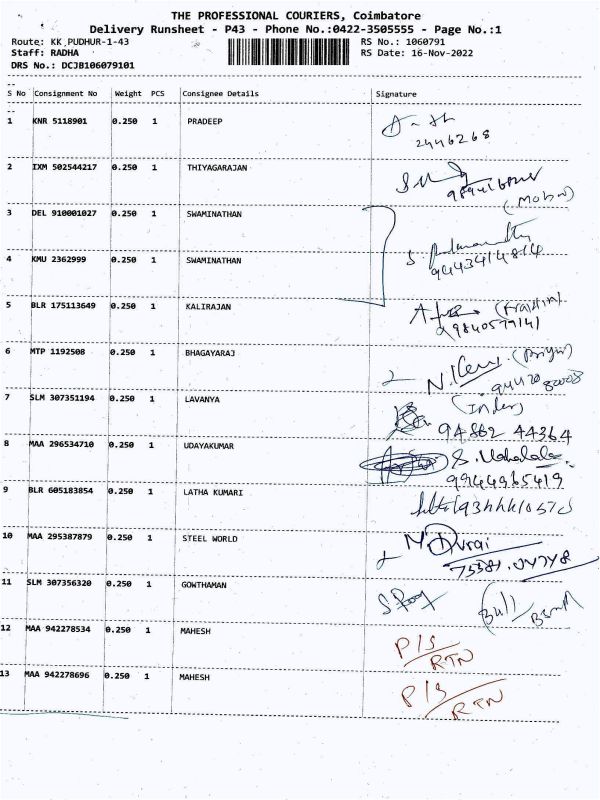 THE PROFESSIONAL COURIERS, Coimbatore
Delivery Runsheet - P43 - Phone No.:0422-3505555 - Page No.:1
Route: KK PUDHUR-1-43 RS No.: 1060791
Staff: RADHA RS Date: 16-Nov-2022
DRS No.: DCJB106079101
S No Consignment No Weight PCS Consignee Details Signature
1 KNR 5118901 0.250 1 PRADEEP
2446268
2 IXM 502544217 0.250 1 THIYAGARAJAN
3 DEL 910001027 0.250 1 SWAMINATHAN
4 KMU 2362999 0.250 1 SWAMINATHAN
9443414814
5 BLR 175113649 0.250 1 KALIRAJAN
9840579141
6 MTP 1192508 0.250 1 BHAGAYARAJ
7 SLM 307351194 0.250 1 LAVANYA
94862 44364
8 MAA 296534710 0.250 1 UDAYAKUMAR
9944965419
9 BLR 605183854 0.250 1 LATHA KUMARI
10 MAA 295387879 0.250 1 STEEL WORLD
M. Durai
11 SLM 307356320 0.250 1 GOWTHAMAN
12 MAA 942278534 0.250 1 MAHESH
P/S
RTN
13 MAA 942278696 0.250 1 MAHESH
P/S
RTN